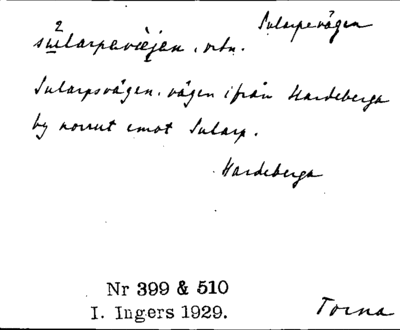 Sularpevägen
2
sularpavèjen, vbn.
Sularpsvägen, vägen ifrån Hardeberga
by norrut emot Sularp.
Hardeberga
Nr 399 & 510
I. Ingers 1929.
Torna